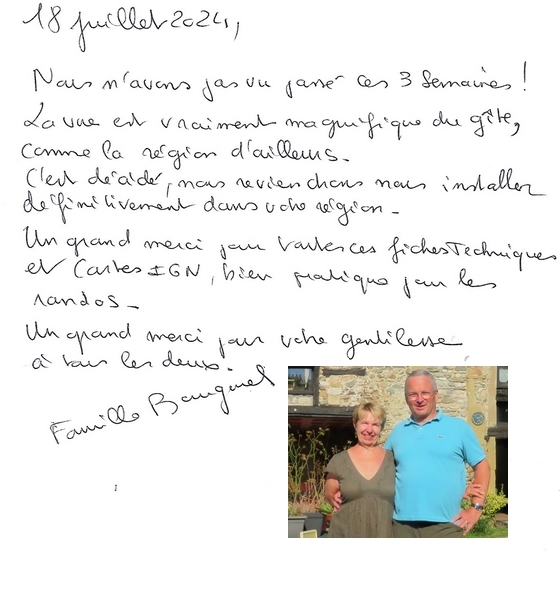 18 juillet 2024,
Nous n'avons pas vu passé ces 3 semaines !
La vue est vraiment magnifique du gîte,
comme la région d'ailleurs.
C'est décidé, nous reviendrons nous installer
définitivement dans votre région.
Un grand merci pour toutes ces fiches Techniques
et Cartes IGN, bien pratique pour les
randos.
Un grand merci pour votre gentillesse
à tous les deux.
Famille